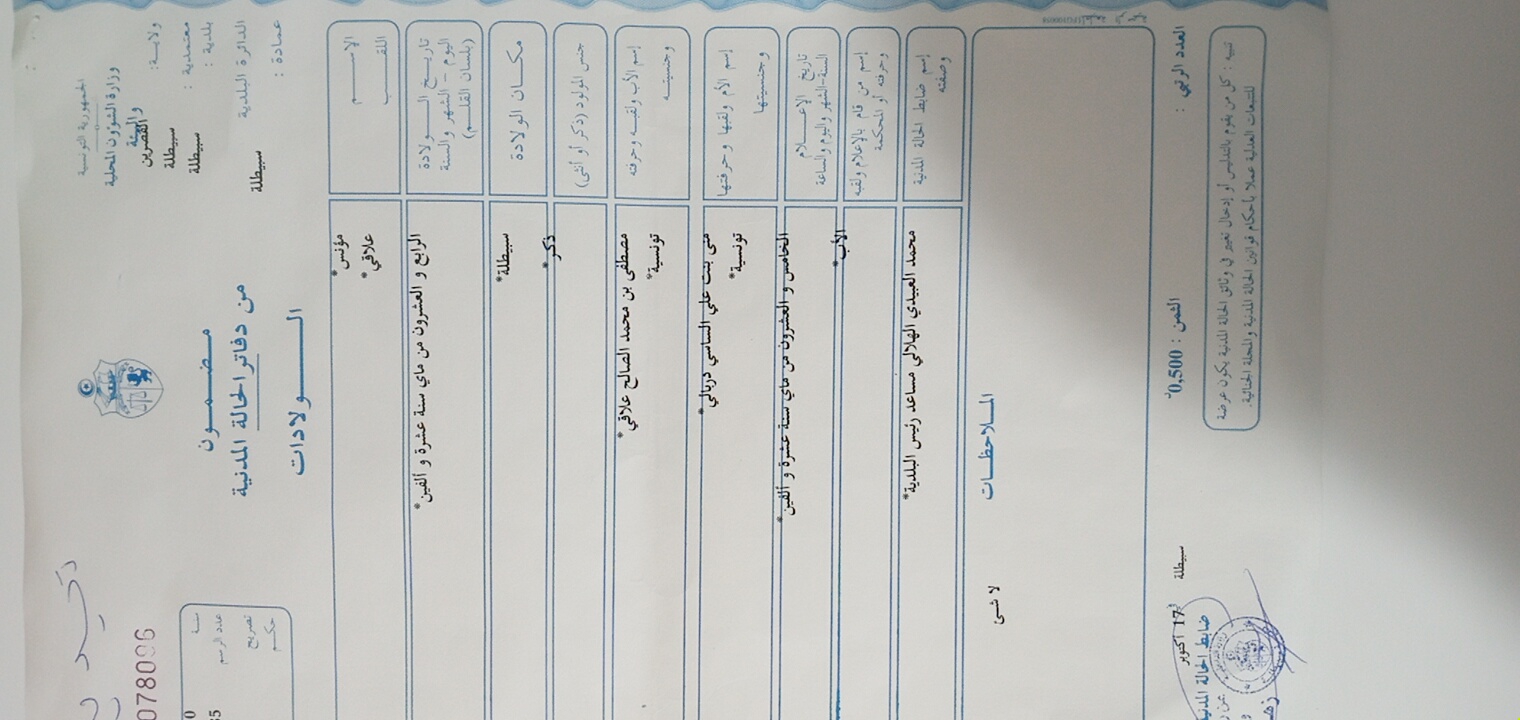 الجمهورية التونسية
وزارة الشؤون المحلية
والبيئة
ولاية: القصرين
معتمدية : سبيطلة
بلدية : سبيطلة
الدائرة البلدية سبيطلة
عمادة :
مضمون
من دفاتر الحالة المدنية
الولادات
078096
سنة
عدد الرسم
تصريح
حكم
الإسم
مؤنس*
اللقب
علاقي*
تاريخ الولادة
اليوم - الشهر والسنة
(بلسان القلم)
الرابع و العشرون من ماي سنة عشرة و ألفين*
مكان الولادة
سبيطلة*
جنس المولود (ذكر أو أنثى)
ذكر*
إسم الأب ولقبه وحرفته
مصطفى بن محمد الصالح علاقي*
وجنسيته
تونسية*
إسم الأم ولقبها وحرفتها
منى بنت علي الساسي دربالي*
وجنسيتها
تونسية*
تاريخ الإعلام
السنة-الشهر واليوم والساعة
الخامس و العشرون من ماي سنة عشرة و ألفين*
إسم من قام بالإعلام ولقبه
وحرفته أو المحكمة
الأب*
إسم ضابط الحالة المدنية
وصفته
محمد العبيدي الهلالي مساعد رئيس البلدية*
الملاحظات
لا شئ
العدد الرتبي :
الثمن : 0,500د
سبيطلة
17 أكتوبر
ضابط الحالة المدنية
تنبيه : كل من يقوم بالتدليس أو إدخال تغيير في وثائق الحالة المدنية يكون عرضة
للتتبعات العدلية عملا بأحكام قوانين الحالة المدنية والمجلة الجنائية.